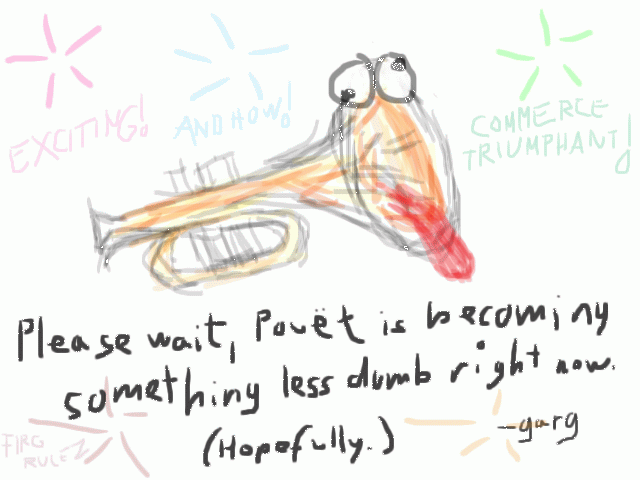 EXCITING!
AND HOW!
COMMERCE
TRIUMPHANT!
Please wait, Pouët is becoming
something less dumb right now.
(Hopefully.)
-garg
FIRG
RULEZ